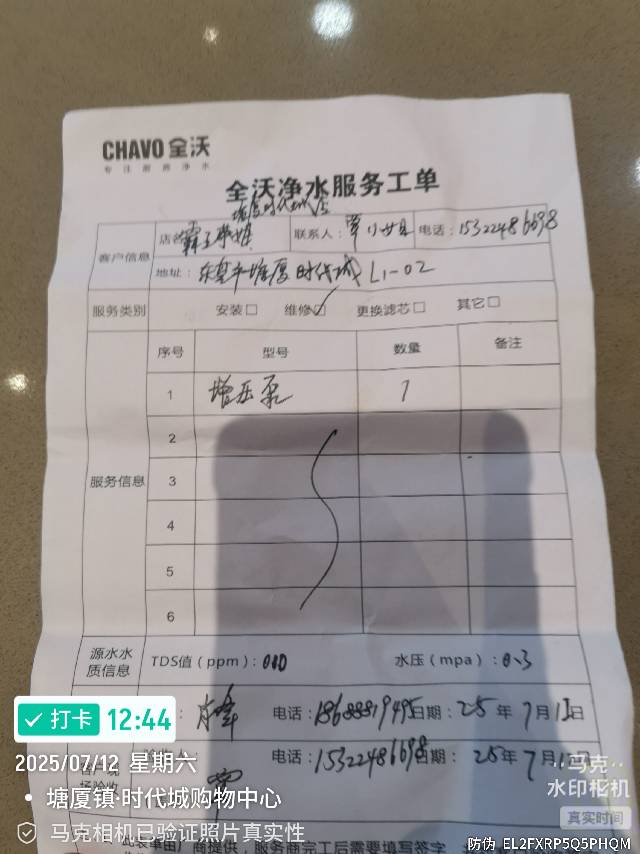 CHAVO 全沃
专注商用净水
全沃净水服务工单
塘厦时代城店
客户信息 店名 霸王茶姬 联系人： 电话：15322486698
地址：东莞市塘厦时代城 L1-02
服务类别 安装□ 维修☑ 更换滤芯□ 其它□
服务信息 序号 型号 数量 备注
1 增压泵 1
2
3
4
5
6
源水水质信息 TDS值（ppm）：010 水压（mpa）：0.3
电话：18688819495 日期：25年7月12日
电话：15322486698 日期：25年7月12日
场验收
打卡 12:44
2025/07/12 星期六
塘厦镇·时代城购物中心
马克相机已验证照片真实性
马克
水印相机
真实时间
厂商提供，服务商完工后需要填写签字
防伪 EL2FXRP5Q5PHQM